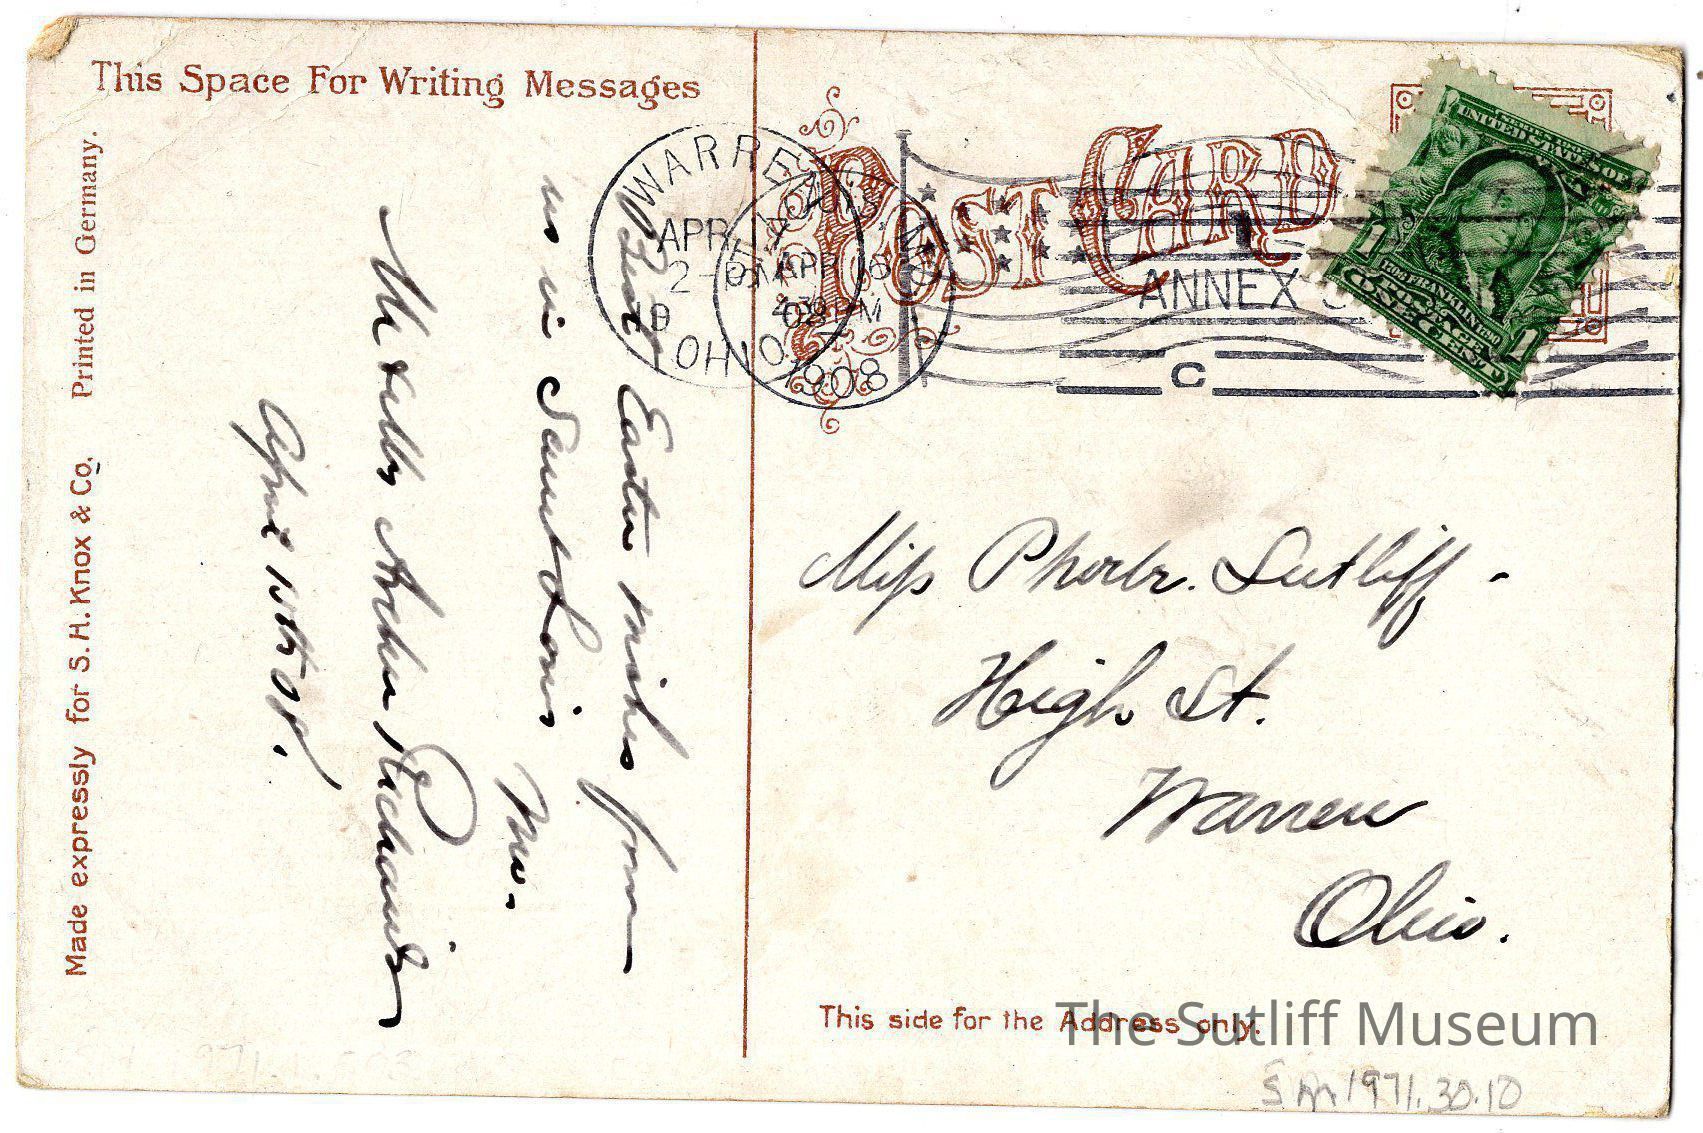 This Space For Writing Messages
Printed in Germany.
Made expressly for S. H. Knox & Co.
POST CARD
WARREN
APR
2-PM
OHIO
APR 16
1908
ANNEX
C
1
UNITED STATES OF
FRANKLIN
ONE CENT
1 1
Best
Easter wishes from
us in Saint Louis
Mo.
April 15th 08.
Miss Phoebe Sutliff -
High St.
Warren
Ohio.
This side for the Address only.
The Sutliff Museum
SM 1971.30.10